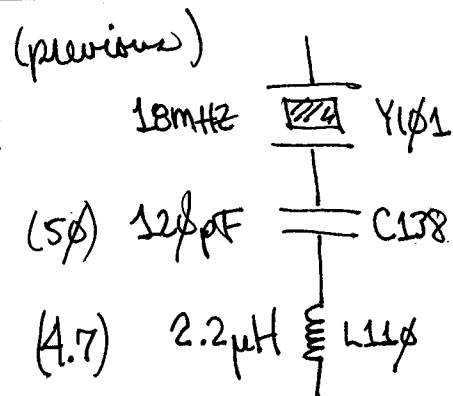 (previous)
18mHZ Y1Ø1
(5Ø) 12ØpF C138
(4.7) 2.2μH L11Ø